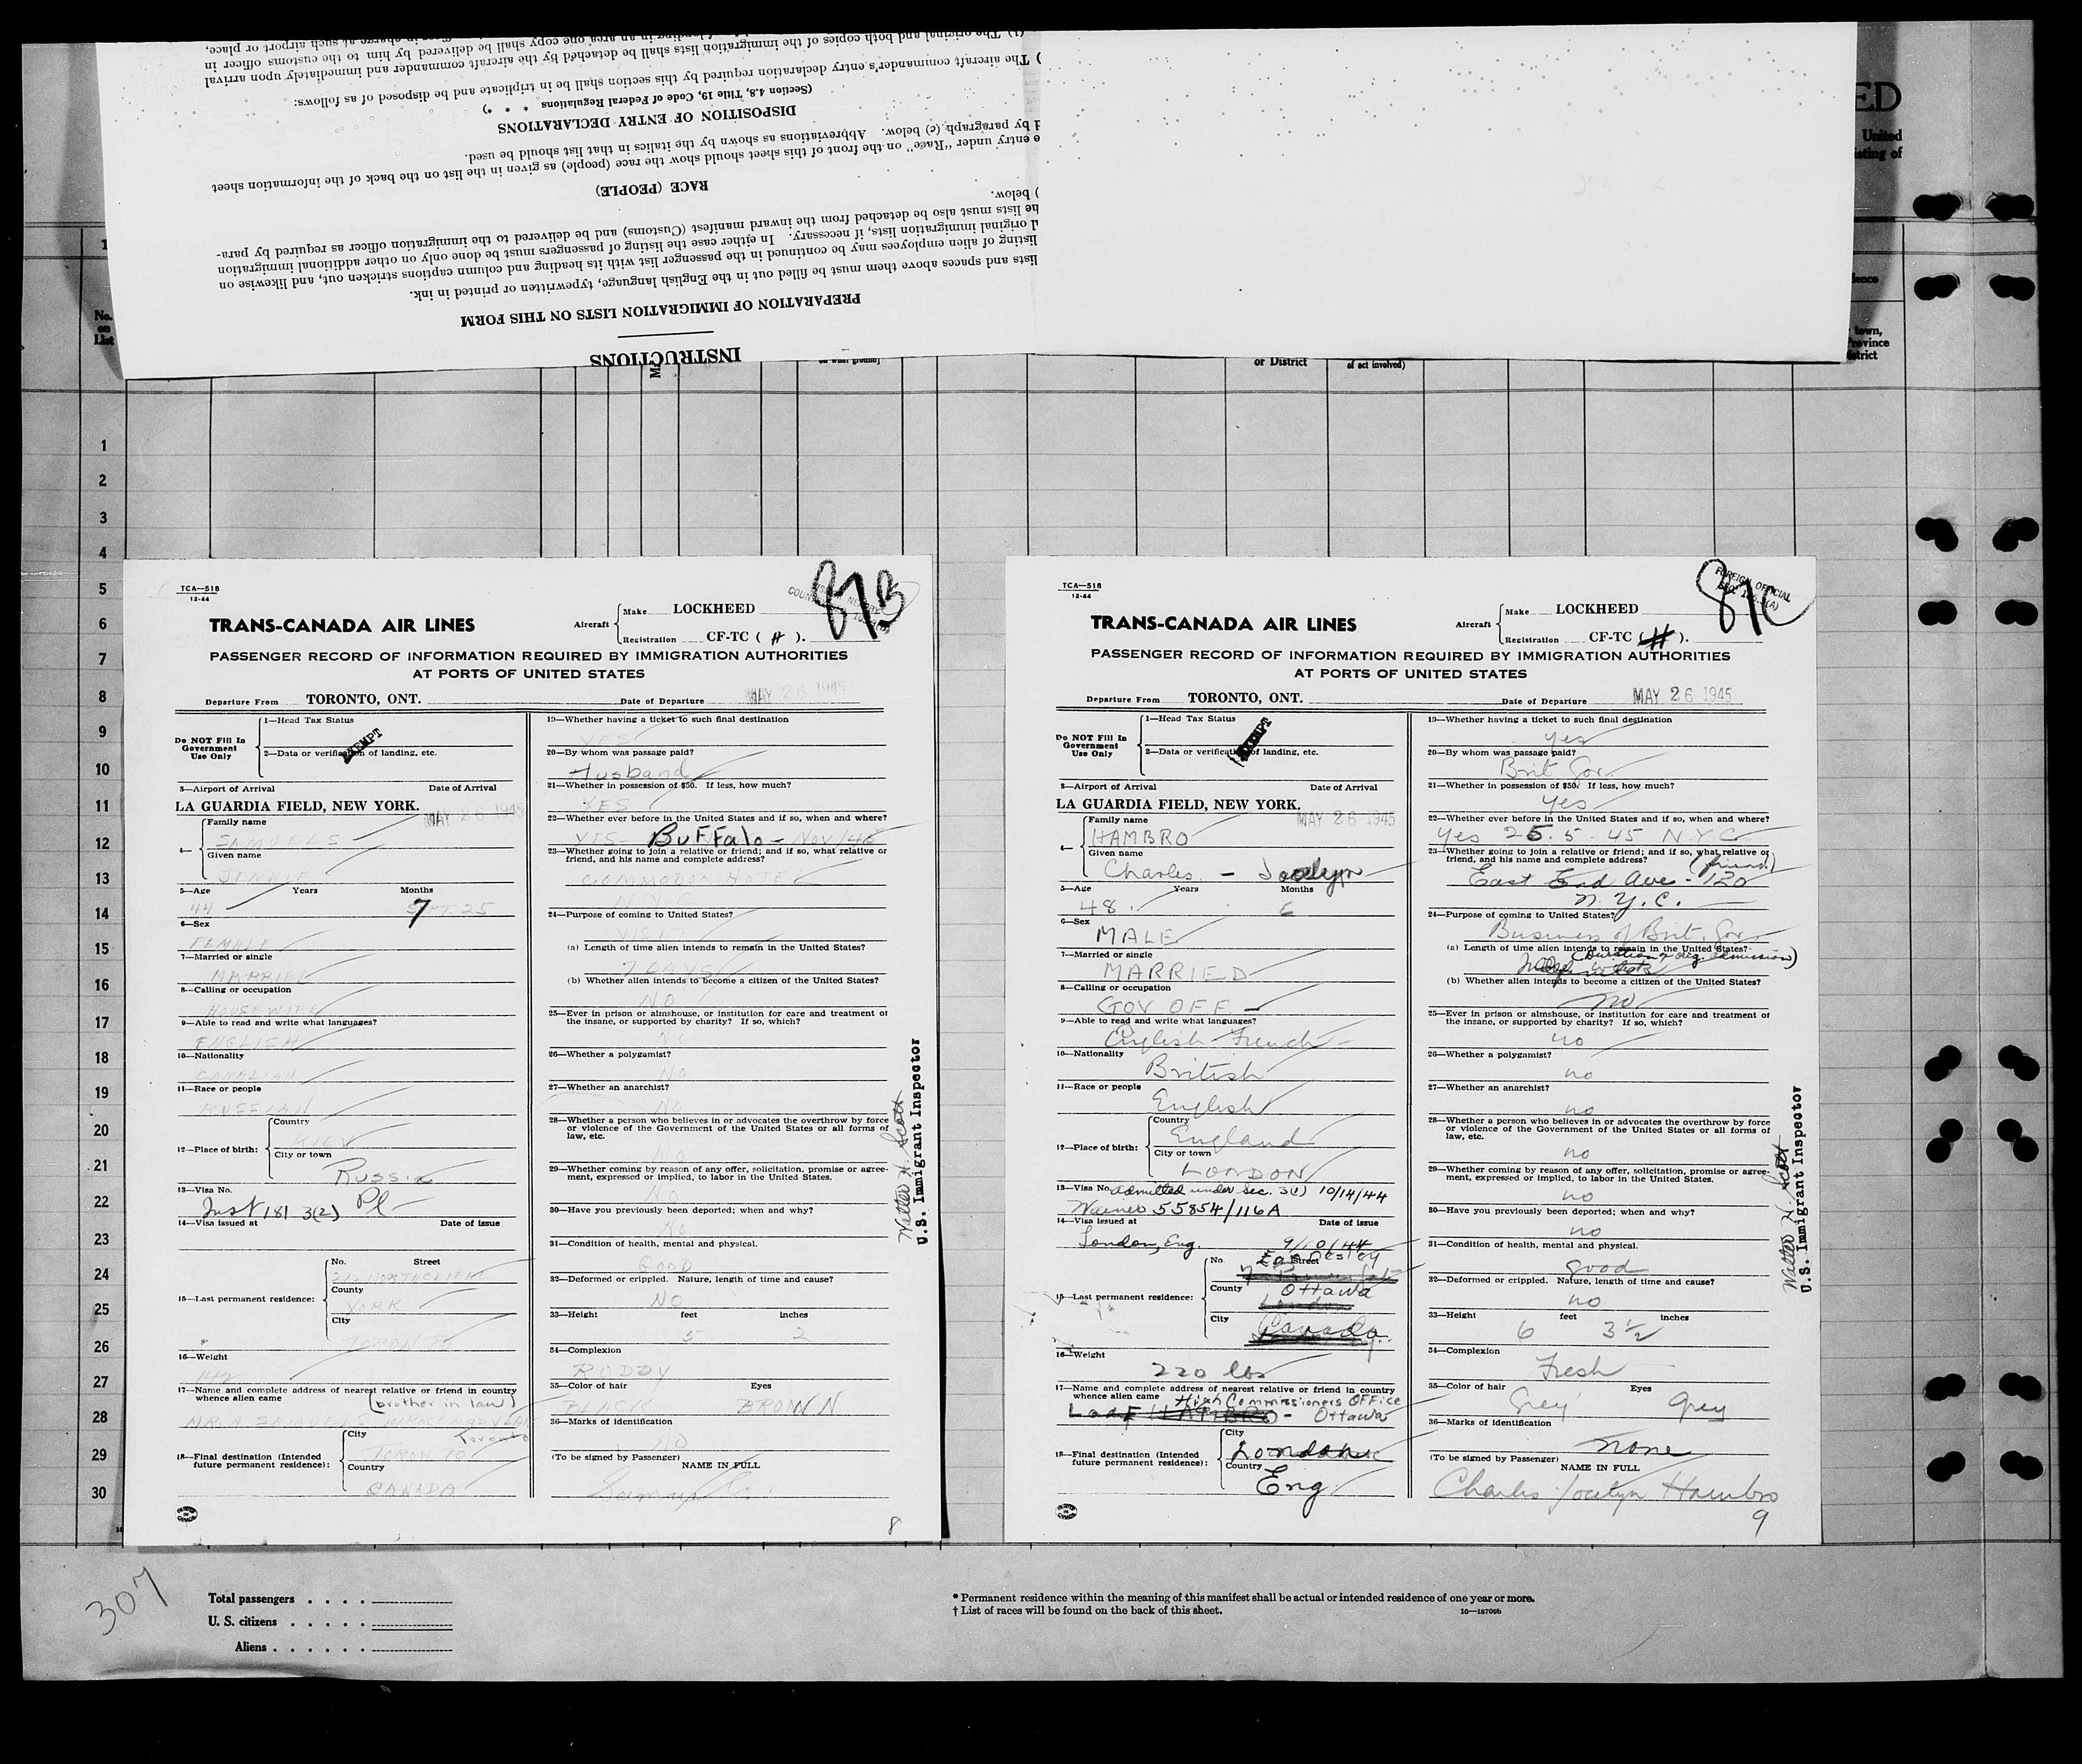 (1) The original and both copies of the immigration lists shall be detached by the aircraft commander and immediately upon arrival
) The aircraft commander's entry declaration required by this section shall be in triplicate and be disposed of as follows:
(Section 4.8, Title 19, Code of Federal Regulations * * *)
DISPOSITION OF ENTRY DECLARATIONS
d by paragraph (c) below. Abbreviations as shown by the italics in that list should be used.
e entry under "Race" on the front of this sheet should show the race (people) as given in the list on the back of the information sheet
RACE (PEOPLE)
) below.
he lists must also be detached from the inward manifest (Customs) and be delivered to the immigration officer as required by para-
d original immigration lists, if necessary. In either case the listing of passengers must be done only on other additional immigration
listing of alien employees may be continued in the passenger list with its heading and column captions stricken out, and likewise on
lists and spaces above them must be filled out in the English language, typewritten or printed in ink.
PREPARATION OF IMMIGRATION LISTS ON THIS FORM
INSTRUCTIONS
ED
United
isting of
dence
town,
Province
District
No.
on
List
on what ground)
or District
of act involved)
1
2
3
4
5
6
7
8
9
10
11
12
13
14
15
16
17
18
19
20
21
22
23
24
25
26
27
28
29
30
TCA—518
12-44
87B
TRANS-CANADA AIR LINES
Aircraft
Make LOCKHEED
Registration CF-TC ( H ).
PASSENGER RECORD OF INFORMATION REQUIRED BY IMMIGRATION AUTHORITIES
AT PORTS OF UNITED STATES
Departure From TORONTO, ONT. Date of Departure MAY 26 1945
Do NOT Fill In
Government
Use Only
1—Head Tax Status
EXEMPT
2—Data or verification of landing, etc.
3—Airport of Arrival Date of Arrival
LA GUARDIA FIELD, NEW YORK. MAY 26 1945
4—
Family name
SAMUELS
Given name
JENNIE
5—Age Years Months
44 7 SEPT. 25
6—Sex
FEMALE
7—Married or single
MARRIED
8—Calling or occupation
HOUSEWIFE
9—Able to read and write what languages?
ENGLISH
10—Nationality
CANADIAN
11—Race or people
RUSSIAN
12—Place of birth:
Country
KIEV
City or town
Russia
13—Visa No.
Inst 181 3(2) Pl
14—Visa issued at Date of issue
15—Last permanent residence:
No. Street
County
YORK
City
TORONTO
16—Weight
142
17—Name and complete address of nearest relative or friend in country
whence alien came (brother in law)
MR. A SAMUELS
Toronto
18—Final destination (Intended
future permanent residence):
City
TORONTO
Country
CANADA
19—Whether having a ticket to such final destination
YES
20—By whom was passage paid?
Husband
21—Whether in possession of $50. If less, how much?
YES
22—Whether ever before in the United States and if so, when and where?
YES - Buffalo - Nov/
23—Whether going to join a relative or friend; and if so, what relative or
friend, and his name and complete address?
COMMODOR HOTEL
N.Y.C
24—Purpose of coming to United States?
VISIT
(a) Length of time alien intends to remain in the United States?
7 DAYS
(b) Whether alien intends to become a citizen of the United States?
NO
25—Ever in prison or almshouse, or institution for care and treatment of
the insane, or supported by charity? If so, which?
NO
26—Whether a polygamist?
NO
27—Whether an anarchist?
NO
28—Whether a person who believes in or advocates the overthrow by force
or violence of the Government of the United States or all forms of
law, etc.
NO
29—Whether coming by reason of any offer, solicitation, promise or agree-
ment, expressed or implied, to labor in the United States.
NO
30—Have you previously been deported; when and why?
No
31—Condition of health, mental and physical.
GOOD
32—Deformed or crippled. Nature, length of time and cause?
NO
33—Height feet inches
5 2
34—Complexion
RUDDY
35—Color of hair Eyes
BLACK BROWN
36—Marks of identification
NO
(To be signed by Passenger) NAME IN FULL
8
Walter H. Scott
U.S. Immigrant Inspector
TCA—518
12-44
87C
FOREIGN OFFICIAL
TRANS-CANADA AIR LINES
Aircraft
Make LOCKHEED
Registration CF-TC ( H ).
PASSENGER RECORD OF INFORMATION REQUIRED BY IMMIGRATION AUTHORITIES
AT PORTS OF UNITED STATES
Departure From TORONTO, ONT. Date of Departure MAY 26 1945
Do NOT Fill In
Government
Use Only
1—Head Tax Status
EXEMPT
2—Data or verification of landing, etc.
3—Airport of Arrival Date of Arrival
LA GUARDIA FIELD, NEW YORK. MAY 26 1945
4—
Family name
HAMBRO
Given name
Charles - Jocelyn
5—Age Years Months
48 6
6—Sex
MALE
7—Married or single
MARRIED
8—Calling or occupation
GOV OFF
9—Able to read and write what languages?
English French
10—Nationality
British
11—Race or people
English
12—Place of birth:
Country
England
City or town
LONDON
13—Visa No. admitted under Sec. 3(1) 10/14/44
Waiver 55854/116A
14—Visa issued at Date of issue
London, Eng. 9/10/44
15—Last permanent residence:
No. Street
County
Ottawa
City
Canada
16—Weight
220 lbs
17—Name and complete address of nearest relative or friend in country
whence alien came High Commissioners Office
HAMBRO - Ottawa
18—Final destination (Intended
future permanent residence):
City
London
Country
Eng
19—Whether having a ticket to such final destination
yes
20—By whom was passage paid?
Brit Gov.
21—Whether in possession of $50. If less, how much?
yes
22—Whether ever before in the United States and if so, when and where?
yes 25.5.45 N.Y.C
23—Whether going to join a relative or friend; and if so, what relative or
friend, and his name and complete address? (friend)
East End Ave - 120
N.Y.C.
24—Purpose of coming to United States?
Business of Brit. Gov.
(a) Length of time alien intends to remain in the United States?
(Duration of orig. admission)
(b) Whether alien intends to become a citizen of the United States?
no
25—Ever in prison or almshouse, or institution for care and treatment of
the insane, or supported by charity? If so, which?
no
26—Whether a polygamist?
no
27—Whether an anarchist?
no
28—Whether a person who believes in or advocates the overthrow by force
or violence of the Government of the United States or all forms of
law, etc.
no
29—Whether coming by reason of any offer, solicitation, promise or agree-
ment, expressed or implied, to labor in the United States.
no
30—Have you previously been deported; when and why?
no
31—Condition of health, mental and physical.
good
32—Deformed or crippled. Nature, length of time and cause?
no
33—Height feet inches
6 3½
34—Complexion
Fresh
35—Color of hair Eyes
Grey Grey
36—Marks of identification
none
(To be signed by Passenger) NAME IN FULL
Charles Jocelyn Hambro
9
Walter H. Scott
U.S. Immigrant Inspector
307
Total passengers . . . .
U. S. citizens . . . . .
Aliens . . . . . .
* Permanent residence within the meaning of this manifest shall be actual or intended residence of one year or more.
† List of races will be found on the back of this sheet.
16—18709b